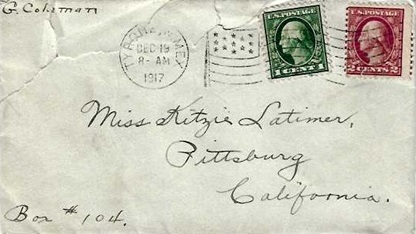 G. Coleman
TYRONE, N. MEX.
DEC 19
8 - AM
1917
U.S. POSTAGE
1 CENT 1
U.S. POSTAGE
2 CENTS 2
Miss Kitzie Latimer,
Pittsburg
California.
Box # 104.